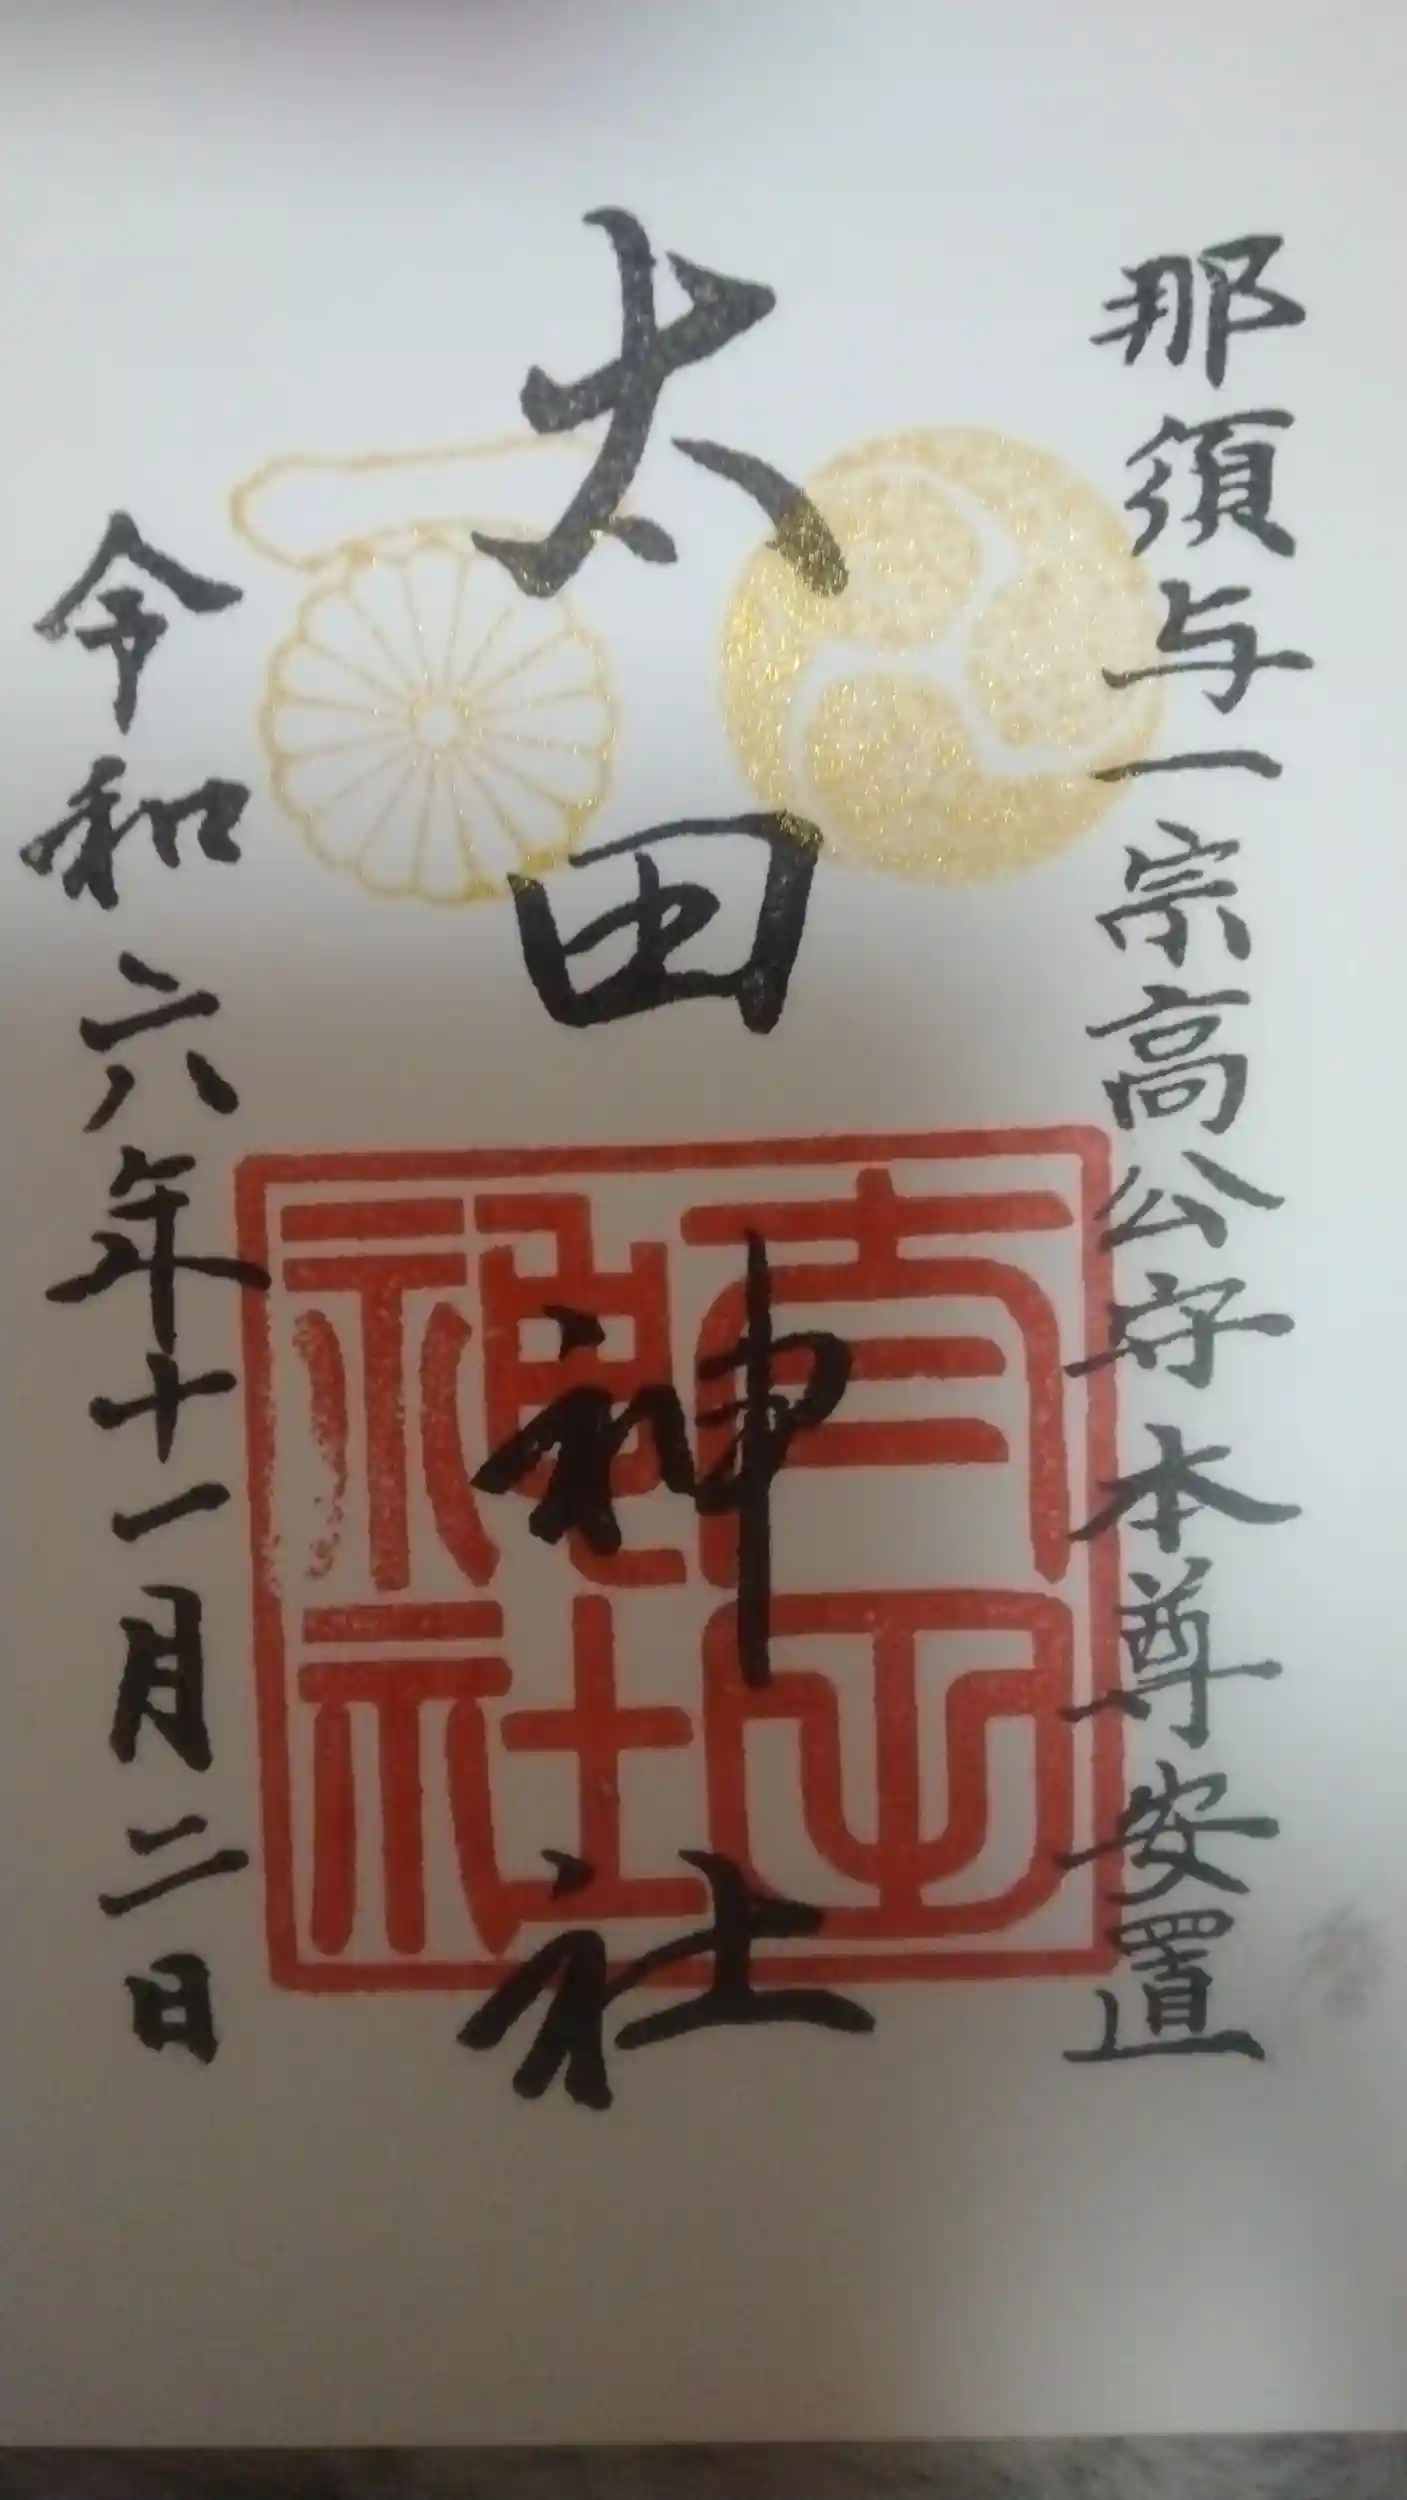 那須与一宗高公守本尊安置
太田神社
太田
神社
令和六年十一月二日